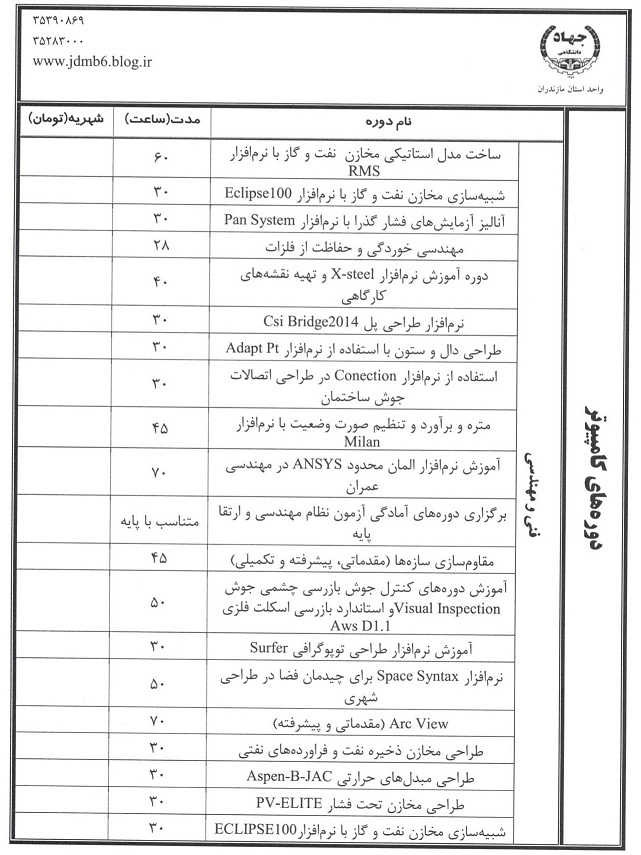 ۳۵۳۹۰۸۶۹
۳۵۲۸۳۰۰۰
www.jdmb6.blog.ir
جهاد
دانشگاهی
واحد استان مازندران
نام دوره مدت(ساعت) شهریه(تومان)
دوره‌های کامپیوتر
فنی و مهندسی
ساخت مدل استاتیکی مخازن نفت و گاز با نرم‌افزار ۶۰
RMS
شبیه‌سازی مخازن نفت و گاز با نرم‌افزار Eclipse100 ۳۰
آنالیز آزمایش‌های فشار گذرا با نرم‌افزار Pan System ۳۰
مهندسی خوردگی و حفاظت از فلزات ۲۸
دوره آموزش نرم‌افزار X-steel و تهیه نقشه‌های ۴۰
کارگاهی
نرم‌افزار طراحی پل Csi Bridge2014 ۳۰
طراحی دال و ستون با استفاده از نرم‌افزار Adapt Pt ۳۰
استفاده از نرم‌افزار Conection در طراحی اتصالات ۳۰
جوش ساختمان
متره و برآورد و تنظیم صورت وضعیت با نرم‌افزار ۴۵
Milan
آموزش نرم‌افزار المان محدود ANSYS در مهندسی ۷۰
عمران
برگزاری دوره‌های آمادگی آزمون نظام مهندسی و ارتقا متناسب با پایه
پایه
مقاوم‌سازی سازه‌ها (مقدماتی، پیشرفته و تکمیلی) ۴۵
آموزش دوره‌های کنترل جوش بازرسی چشمی جوش ۵۰
Visual Inspectionو استاندارد بازرسی اسکلت فلزی
Aws D1.1
آموزش نرم‌افزار طراحی توپوگرافی Surfer ۳۰
نرم‌افزار Space Syntax برای چیدمان فضا در طراحی ۵۰
شهری
Arc View (مقدماتی و پیشرفته) ۷۰
طراحی مخازن ذخیره نفت و فراورده‌های نفتی ۳۰
طراحی مبدل‌های حرارتی Aspen-B-JAC ۳۰
طراحی مخازن تحت فشار PV-ELITE ۳۰
شبیه‌سازی مخازن نفت و گاز با نرم‌افزارECLIPSE100 ۳۰